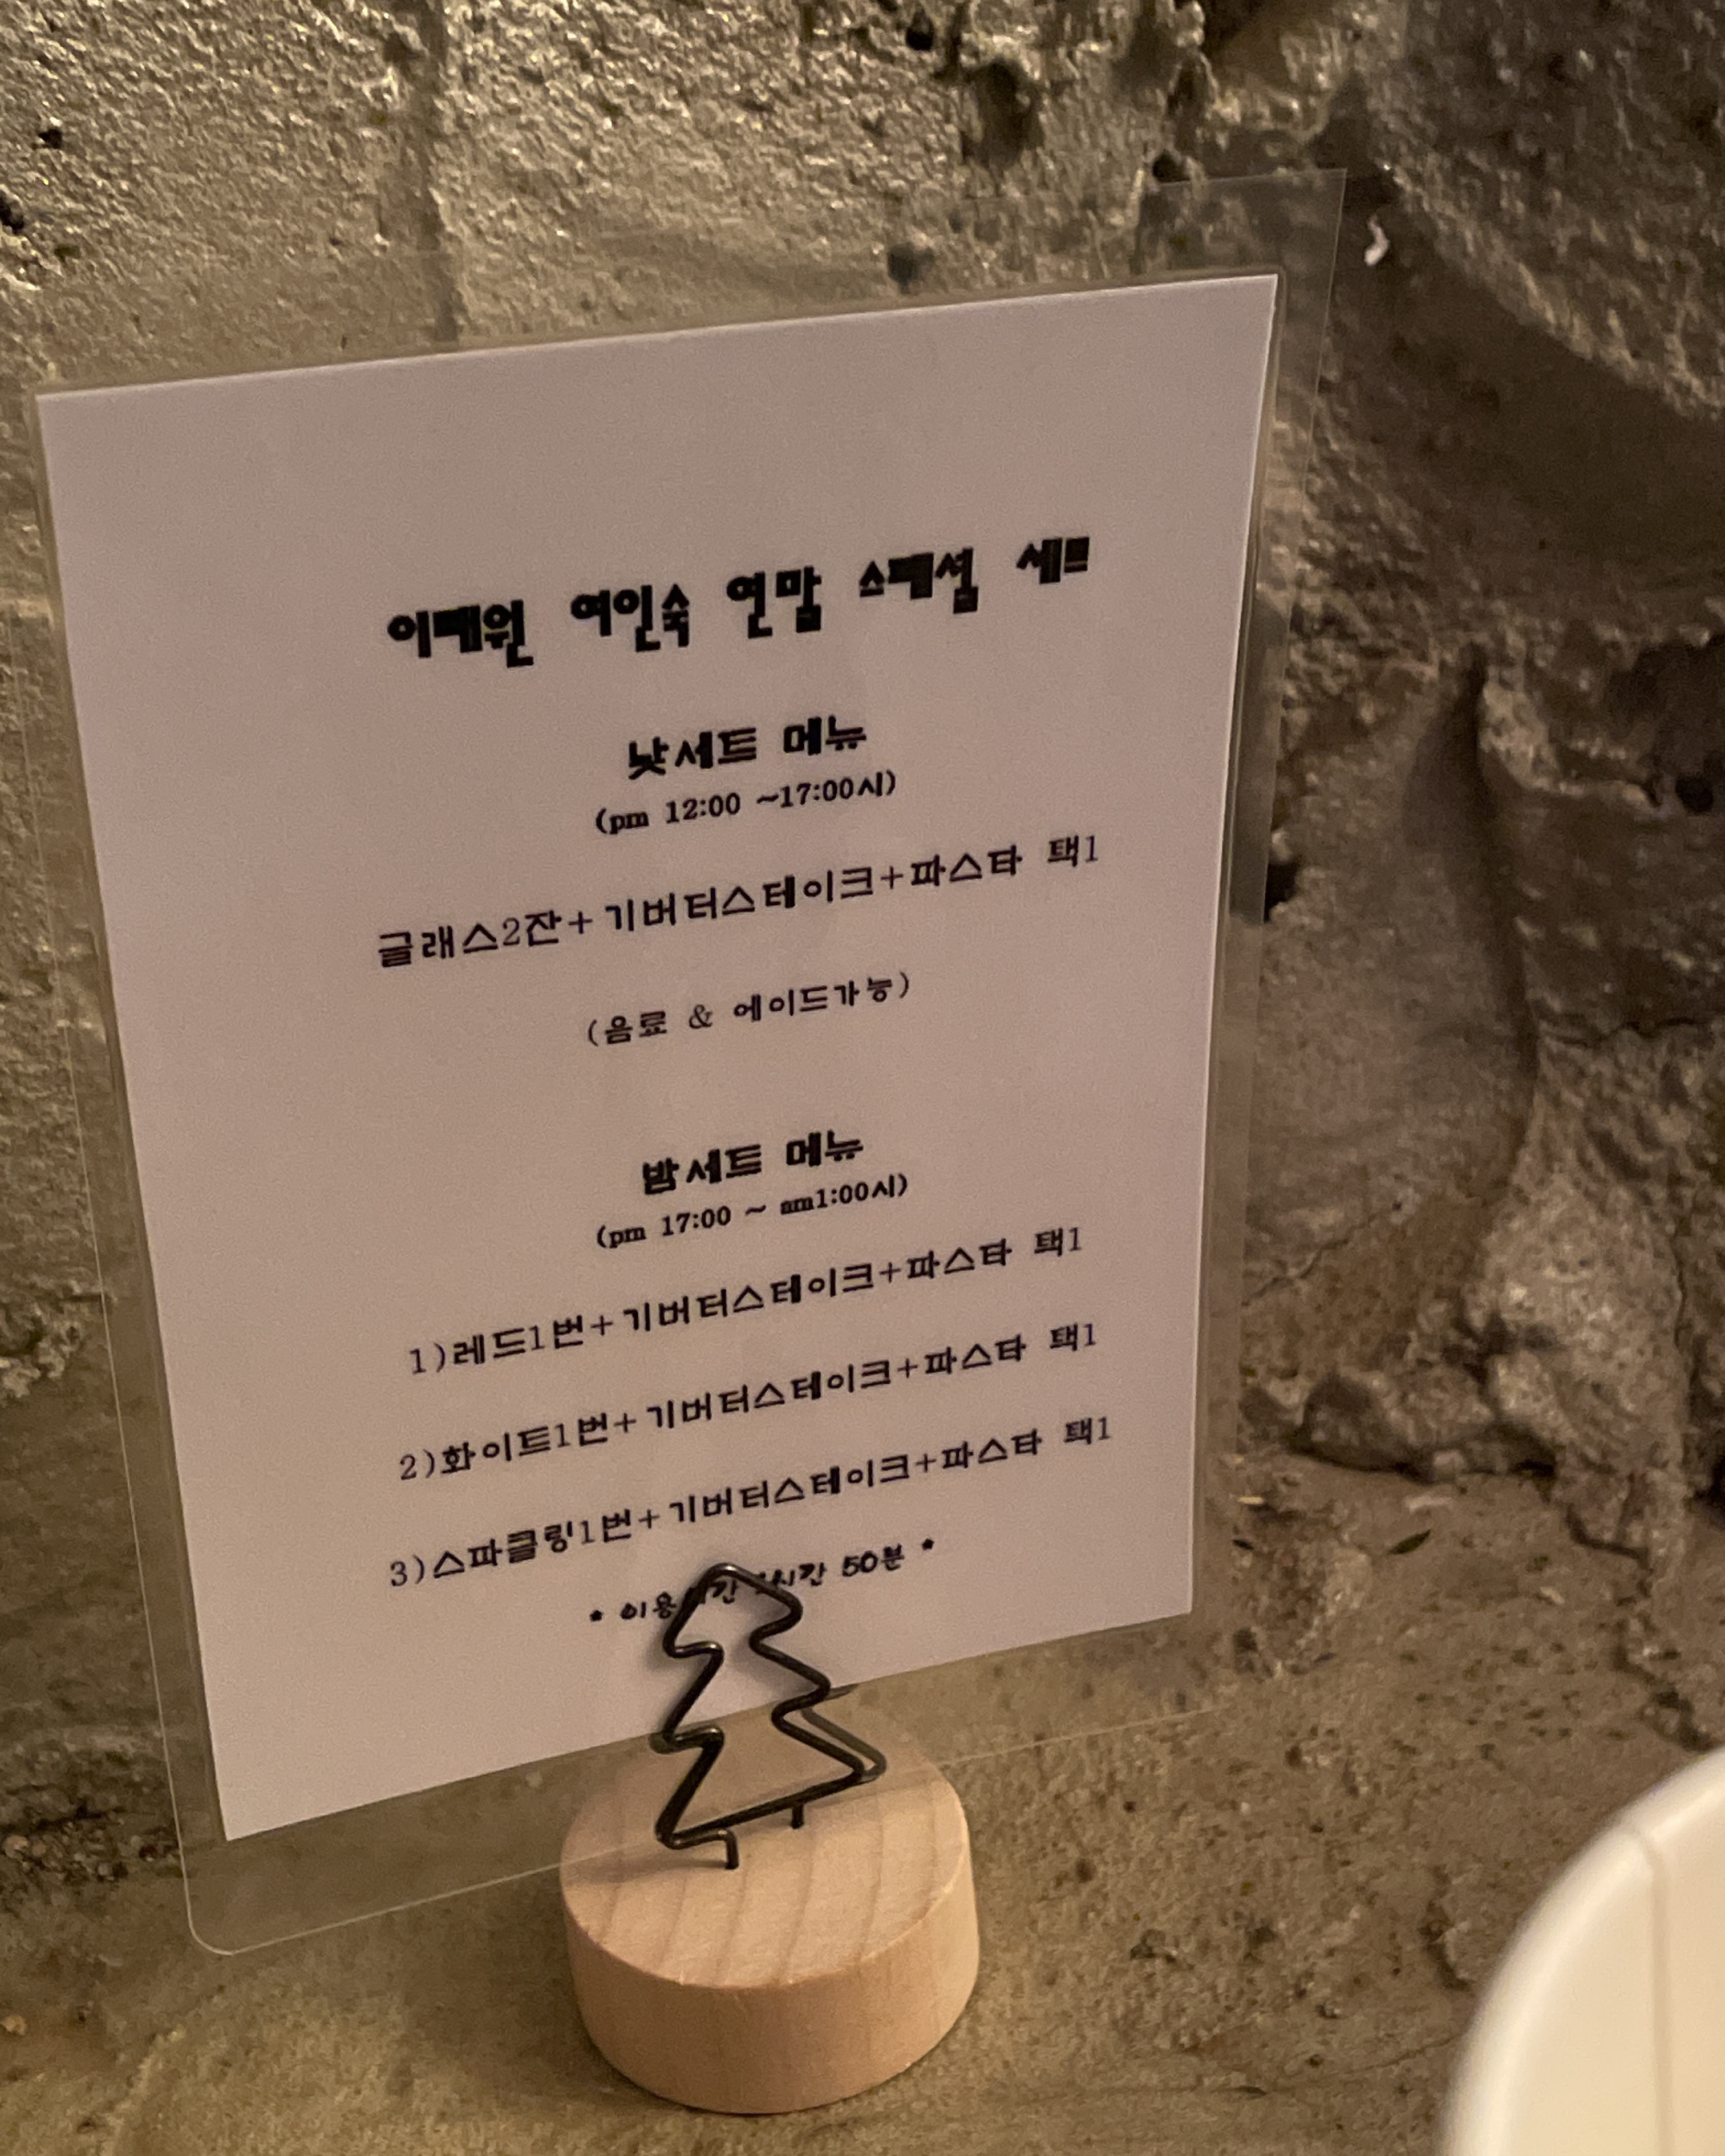 이태원 여인숙 연말 스페셜 세트
낮세트 메뉴
(pm 12:00 ~17:00시)
글래스2잔+기버터스테이크+파스타 택1
(음료 & 에이드가능)
밤세트 메뉴
(pm 17:00 ~ am1:00시)
1)레드1번+기버터스테이크+파스타 택1
2)화이트1번+기버터스테이크+파스타 택1
3)스파클링1번+기버터스테이크+파스타 택1
* 이용시간 1시간 50분 *